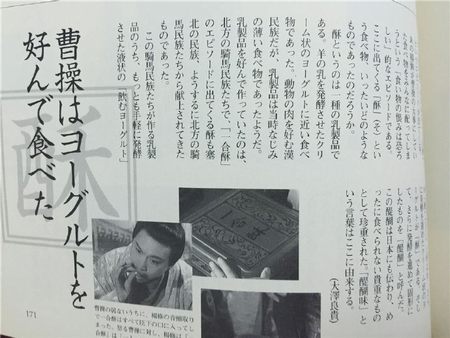 しい」的エピソードである。
ここに出てくる「酥」(そ)とい
う食べ物、いったいどのような
ものであったのだろうか。
酥というのは一種の乳製品で
ある。羊の乳を発酵させたクリ
ーム状のヨーグルトに近い食べ
物であった。動物の肉を好む漢
民族だが、乳製品は当時なじみ
の薄い食べ物であったようだ。
乳製品を好んで作っていたのは、
北方の騎馬民族たちで、「一合酥」
のエピソードに出てくる酥も塞
北の民族、ようするに北方の騎
馬民族たちから献上されてきた
ものであった。
この騎馬民族たちが作る乳製
品のうち、もっとも手軽に発酵
させた液状の「飲むヨーグルト」
て、さらに発酵を進めて固形に
したものを「醍醐」と呼んだ。
この醍醐は日本にも伝わり、め
ったに食べられない貴重なもの
として珍重された。「醍醐味」と
いう言葉はここに由来する。
(大澤良貴)
酥
曹操はヨーグルトを
好んで食べた
曹操の居ないうちに、楊修の音頭取り
で一合酥はすべて臣下の口に入ってし
171